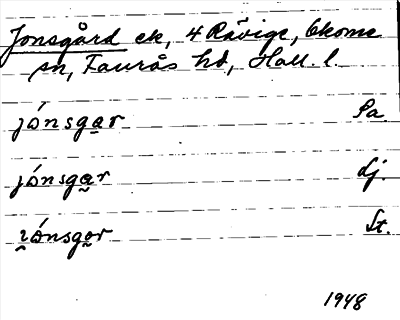 Jonsgård ek, 4 Rävige, Okome
sn, Faurås hd, Hall. l.
jónsgar Pa.
jónsgar Lj.
ɩónsgor St.
1948